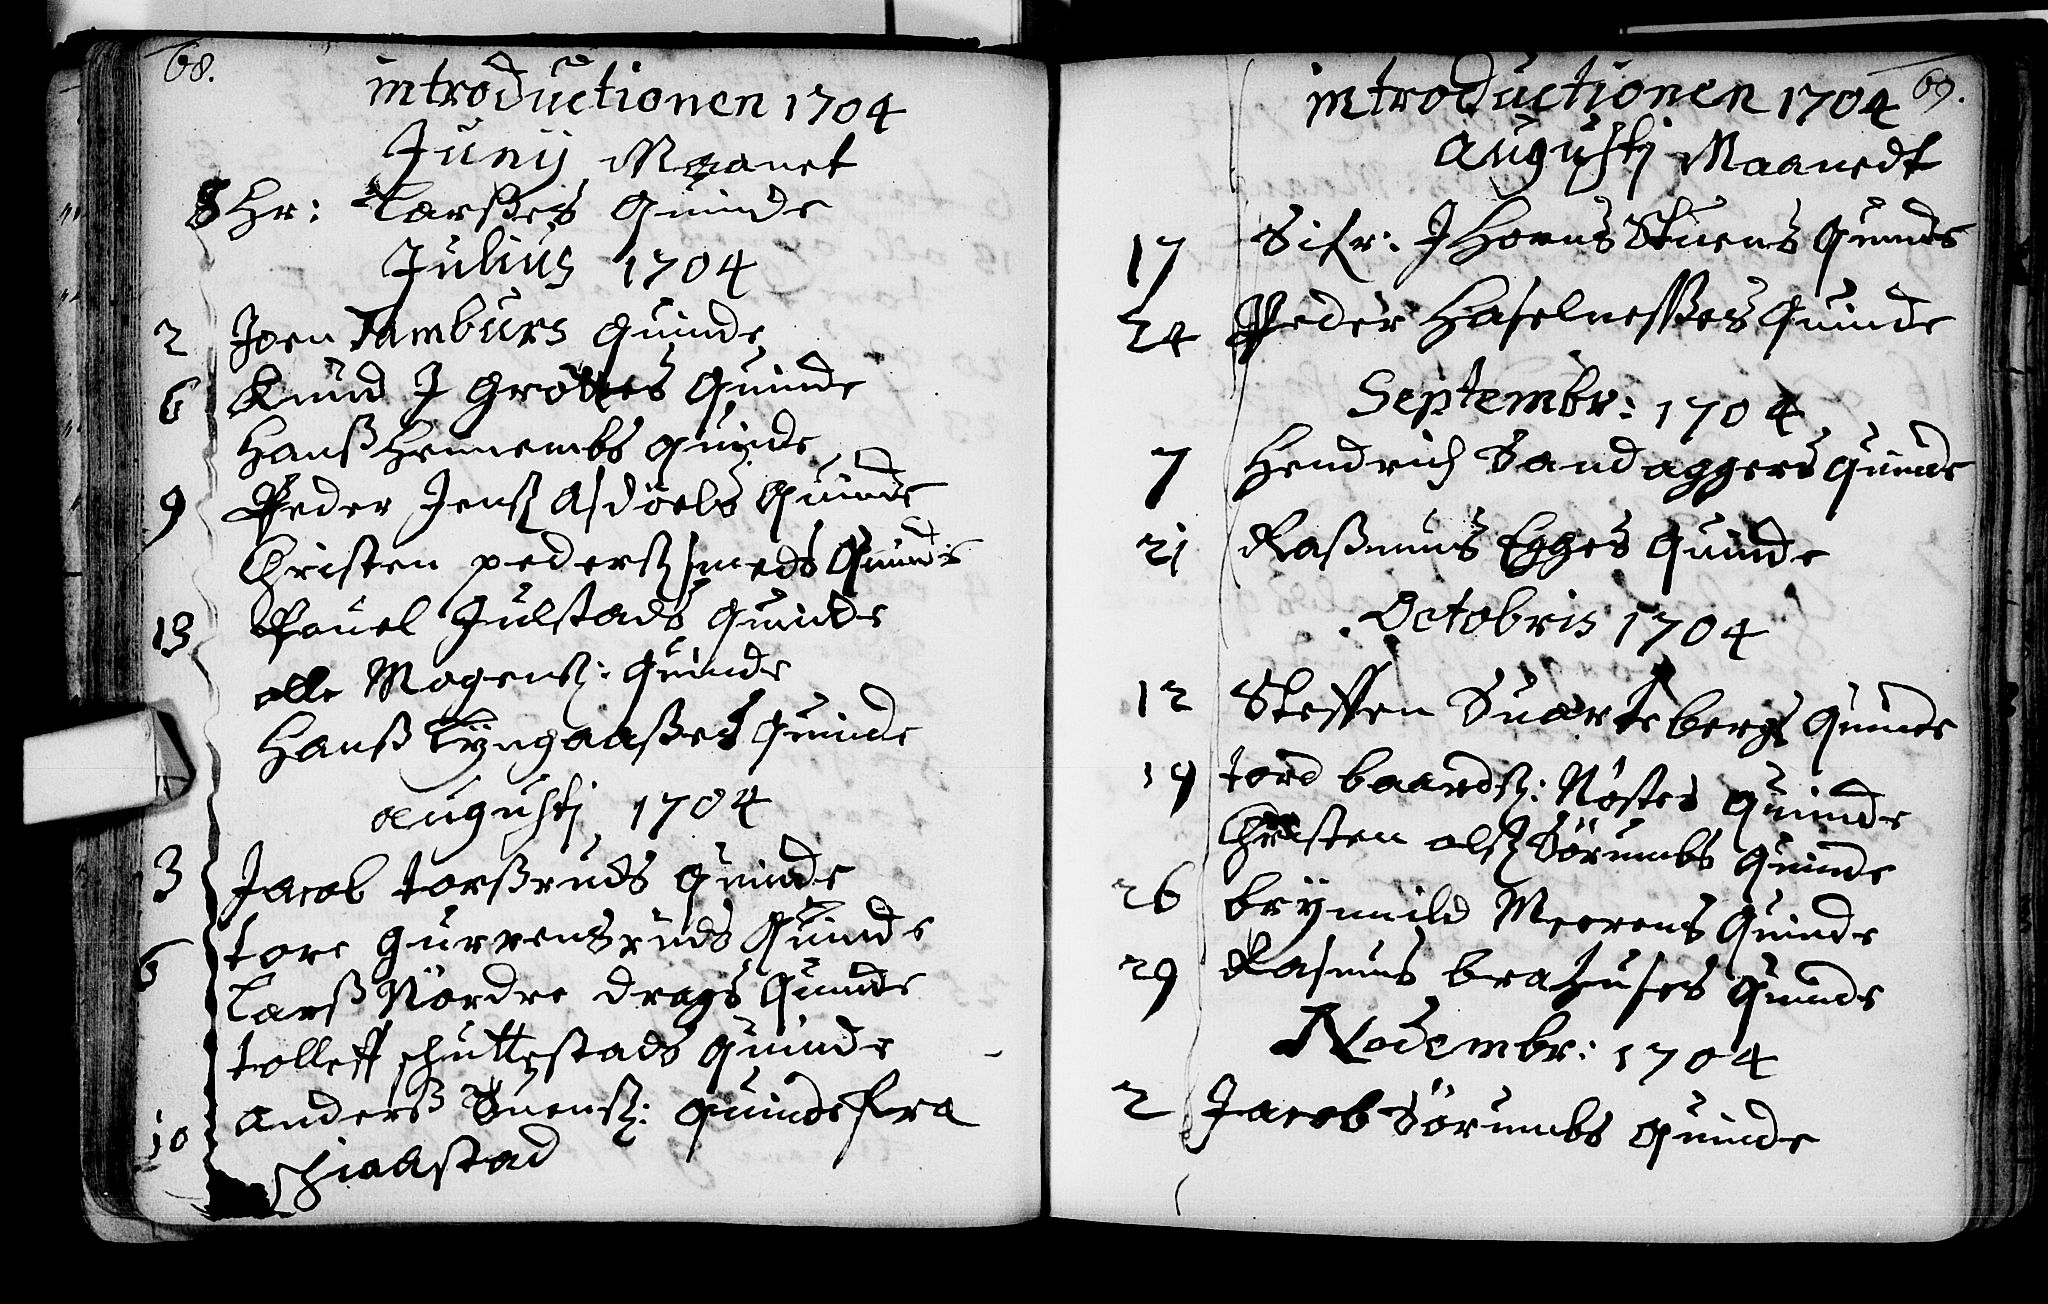 68.
introductionen 1704
Junij Maanet
8 Hr: Larßes Quinde
Julius 1704
2 Joen Tamburs Quinde
6 Knud J Grøttes Quinde
Hanß Hennembs Quinde
9 Peder Jenß Asdöels Quinde
Christen pederß smeds Quinde
13 Pouel Julstads Quinde
olle Mogenß: Quinde
Hanß Lyngaaßes Quinde
augustj 1704
3 Jacob torßruds Quinde
tore Gurrensruds Quinde
6 Larß Nördre drags Quinde
tolleff schuttestads Quinde
10 anderß Suenß: Quinde fra
schiakstad
69.
introductionen 1704
augustj Maanedt
17 Sifr: J Horns Stuens Quinde
24 Peder Haselneßes Quinde
Septembr: 1704
7 Hendrich Sandaggers Quinde
21 Raßmus Egges Quinde
Octobris 1704
12 Steffen Suartebergs Quinde
19 tord baardß: Nöstes Quinde
Christen olß Sörumbs Quinde
26 brynnild Meerens Quinde
29 Rasmus brahuses Quinde
Novembr: 1704
2 Jacob Sörumbs Quinde